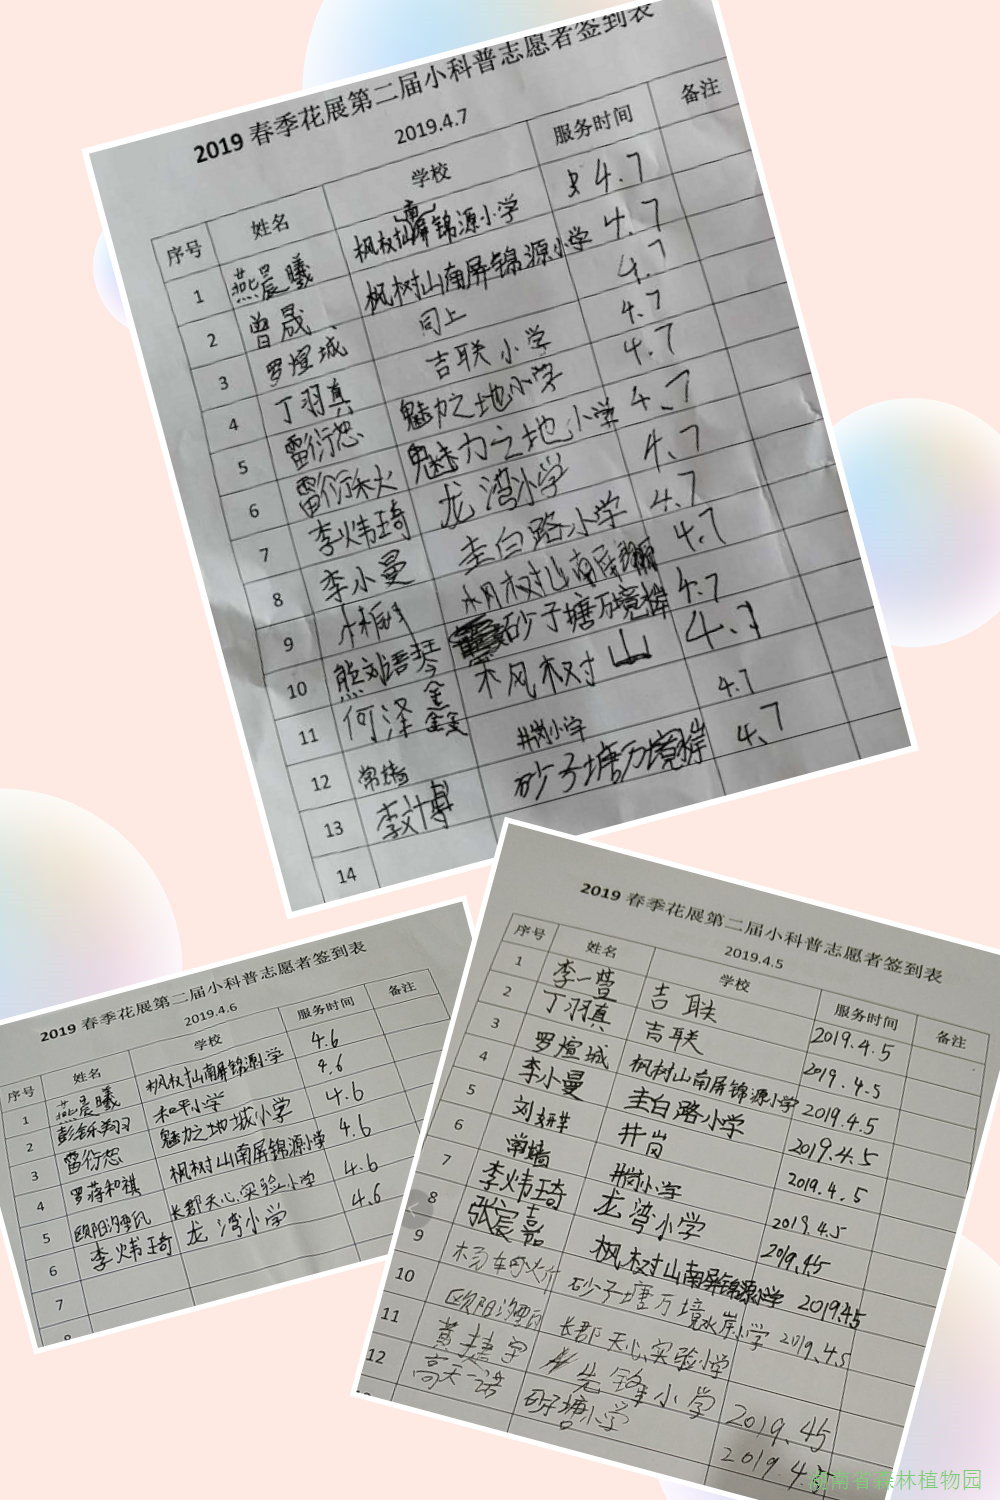 2019 春季花展第二届小科普志愿者签到表
2019.4.7
序号 姓名 学校 服务时间 备注
1 燕晨曦 枫树山南屏锦源小学 4.7
2 曾晟 枫树山南屏锦源小学 4.7
3 罗煊城 同上 4.7
4 丁羽真 吉联小学 4.7
5 雷衍恕 魅力之地小学 4.7
6 雷衍秋 魅力之地小学 4.7
7 李炜琦 龙湾小学 4.7
8 李小曼 圭白路小学 4.7
9 枫树山南屏 4.7
10 熊刘语琴 砂子塘万境 4.7
11 何泽鑫 枫树山 4.7
12 常墙 井岗小学 4.7
13 李文博 砂子塘万境 4.7
14
2019 春季花展第二届小科普志愿者签到表
2019.4.6
序号 姓名 学校 服务时间 备注
1 燕晨曦 枫树山南屏锦源小学 4.6
2 彭铄翔 和平小学 4.6
3 雷衍恕 魅力之地城小学 4.6
4 罗蒋和祺 枫树山南屏锦源小学 4.6
5 欧阳汐 长郡天心实验小学 4.6
6 李炜琦 龙湾小学 4.6
7
8
2019 春季花展第二届小科普志愿者签到表
2019.4.5
序号 姓名 学校 服务时间 备注
1 李一萱 吉联 2019.4.5
2 丁羽真 吉联 2019.4.5
3 罗煊城 枫树山南屏锦源小学 2019.4.5
4 李小曼 圭白路小学 2019.4.5
5 刘妍苹 井岗 2019.4.5
6 常墙 井岗小学 2019.4.5
7 李炜琦 龙湾小学 2019.4.5
8 张宸嘉 枫树山南屏锦源小学 2019.4.5
9 砂子塘万境水岸小学 2019.4.5
10 欧阳汐 长郡天心实验小学
11 黄捷宇 先锋小学 2019.4.5
12 高天一诺 砂子塘小学 2019.4.5
湖南省森林植物园